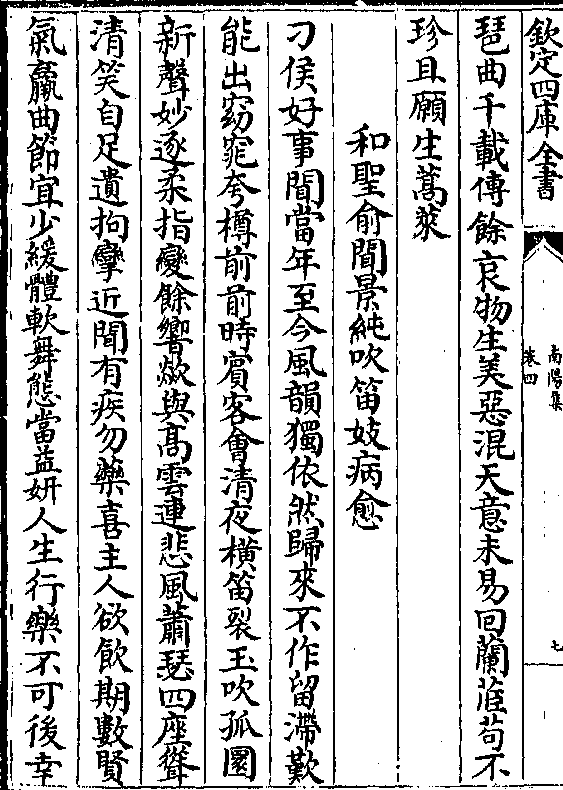 欽定四庫全書
南陽集
卷四
七
琶曲千載傳餘哀物生美惡混天意未易回蘭茝苟不
珍且願生蒿萊
和聖俞聞景純吹笛妓病愈
刁侯好事聞當年至今風韻獨依然歸來不作留滯歎
能出窈窕夸樽前前時賓客會清夜橫笛裂玉吹孤圓
新聲妙逐柔指變餘響欻與高雲連悲風蕭瑟四座聳
清笑自足遺拘攣近聞有疾勿藥喜主人欲飲期數賢
氣羸曲節宜少緩體軟舞態當益妍人生行樂不可後幸